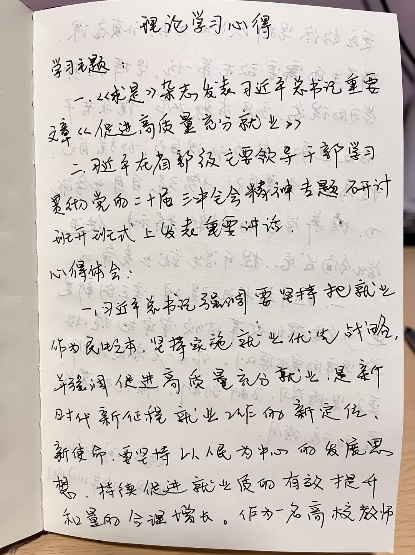 理论学习心得
学习主题：
一、《求是》杂志发表习近平总书记重要
文章《促进高质量充分就业》
二、习近平在省部级主要领导干部学习
贯彻党的二十届三中全会精神专题研讨
班开班式上发表重要讲话.
心得体会：
一、习近平总书记强调要坚持把就业
作为民生之本，坚持实施就业优先战略，
并强调促进高质量充分就业，是新
时代新征程就业工作的新定位、
新使命.要坚持以人民为中心的发展思
想.持续促进就业质的有效提升
和量的合理增长。作为一名高校教师